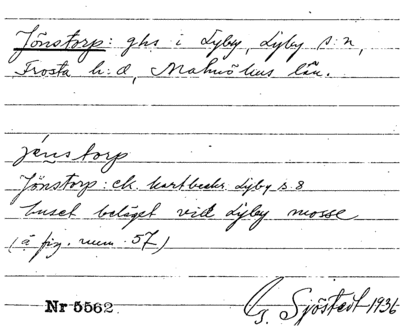 Jönstorp: ghs i Lyby, Lyby s:n,
Frosta h:d, Malmöhus län.
jénstorp
Jönstorp: ek. kartbeskr. Lyby s. 8
huset beläget vid Lyby mosse
(å fig. num. 57)
Nr 5562
G. Sjöstedt 1936